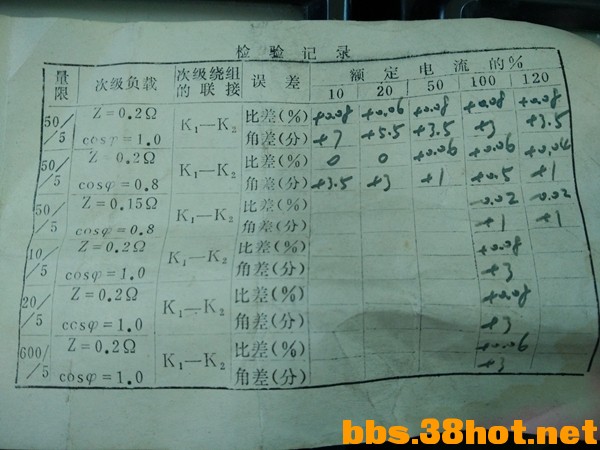 检验记录
量限 次级负载 次级绕组的联接 误差 额定电流的%
10 20 50 100 120
50/5 Z=0.2Ω K₁—K₂ 比差(%) +0.08 +0.06 +0.08 +0.08 +0.08
cosφ=1.0 角差(分) +7 +5.5 +3.5 +3 +3.5
50/5 Z=0.2Ω K₁—K₂ 比差(%) 0 0 +0.06 +0.06 +0.04
cosφ=0.8 角差(分) +3.5 +3 +1 +0.5 +1
50/5 Z=0.15Ω K₁—K₂ 比差(%) -0.02 -0.02
cosφ=0.8 角差(分) +1 +1
10/5 Z=0.2Ω K₁—K₂ 比差(%) +0.08
cosφ=1.0 角差(分) +3
20/5 Z=0.2Ω K₁—K₂ 比差(%) +0.08
cosφ=1.0 角差(分) +3
600/5 Z=0.2Ω K₁—K₂ 比差(%) +0.06
cosφ=1.0 角差(分) +3
bbs.38hot.net